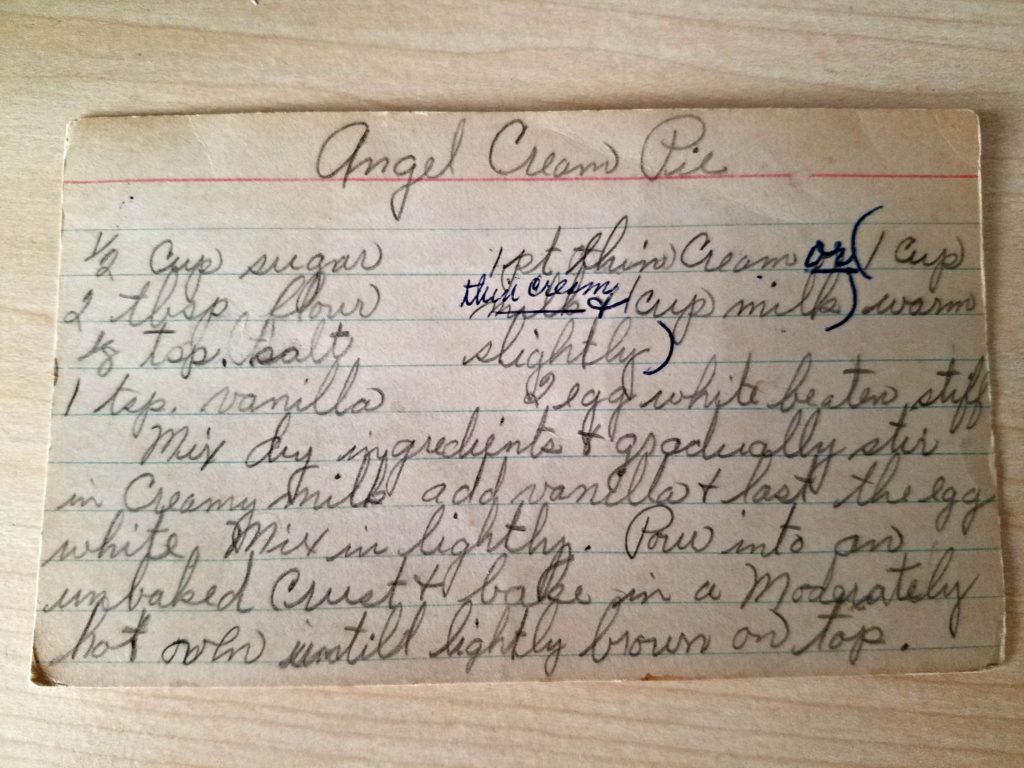 Angel Cream Pie
1/2 Cup sugar 1 pt thin Cream or (1 Cup
2 tbsp flour thin cream & 1 cup milk) warm
1/8 tsp. salt slightly)
1 tsp. vanilla 2 egg white beaten stiff
Mix dry ingredients & gradually stir
in Creamy milk add vanilla & last the egg
white, Mix in lightly. Pour into an
unbaked Crust & bake in a Moderately
hot oven untill lightly brown on top.